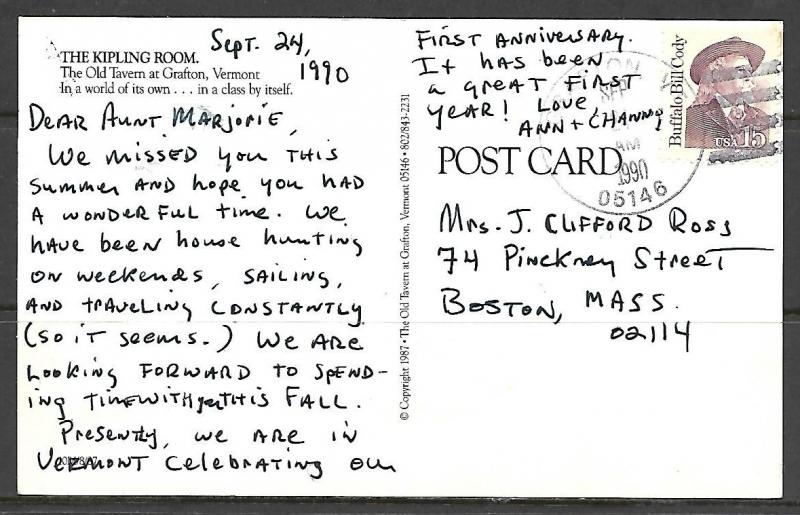 THE KIPLING ROOM.
The Old Tavern at Grafton, Vermont
In a world of its own . . . in a class by itself.
Sept. 24,
1990
Dear Aunt Marjorie,
We missed you this
summer and hope you had
a wonderful time. We
have been house hunting
on weekends, sailing,
and traveling constantly
(so it seems.) We are
looking forward to spend-
ing time with you this fall.
Presently, we are in
Vermont celebrating our
First Anniversary.
It has been
a great first
year! Love,
Ann + Channy
© Copyright 1987 • The Old Tavern at Grafton, Vermont 05146 • 802/843-2231
POST CARD
Buffalo Bill Cody
USA 15
AM
1990
05146
Mrs. J. Clifford Ross
74 Pinckney Street
Boston, Mass.
02114